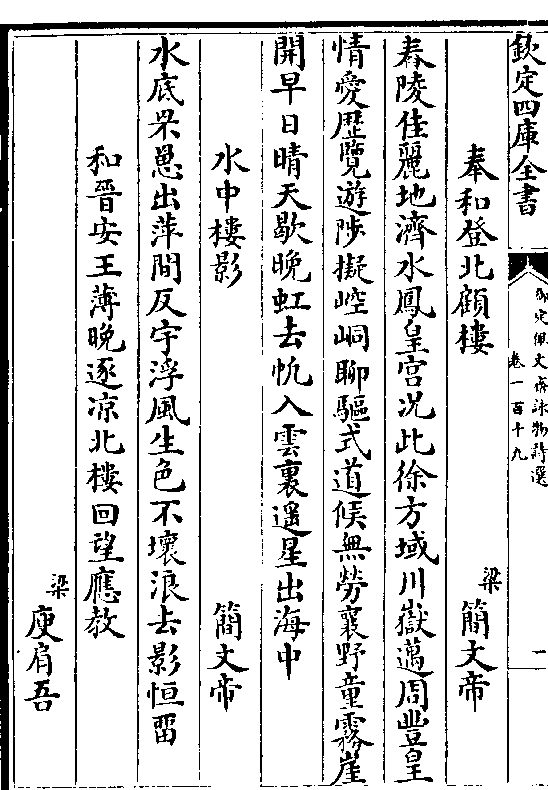 欽定四庫全書
御定佩文齋詠物詩選
卷一百十九
一
奉和登北顧樓
梁簡文帝
春陵佳麗地濟水鳳皇宮況此徐方域川嶽邁周豐皇
情愛歷覽遊陟擬崆峒聊驅式道候無勞襄野童霧崖
開早日晴天歇晚虹去帆入雲裏遥星出海中
水中樓影
簡文帝
水底罘罳出萍間反宇浮風生色不壞浪去影恒留
和晉安王薄晚逐凉北樓回望應教
梁庾肩吾